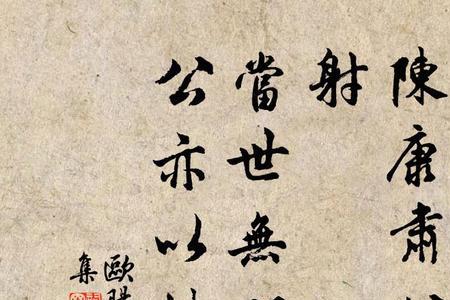 陳康肅
射
當世無
公亦以
歐
集